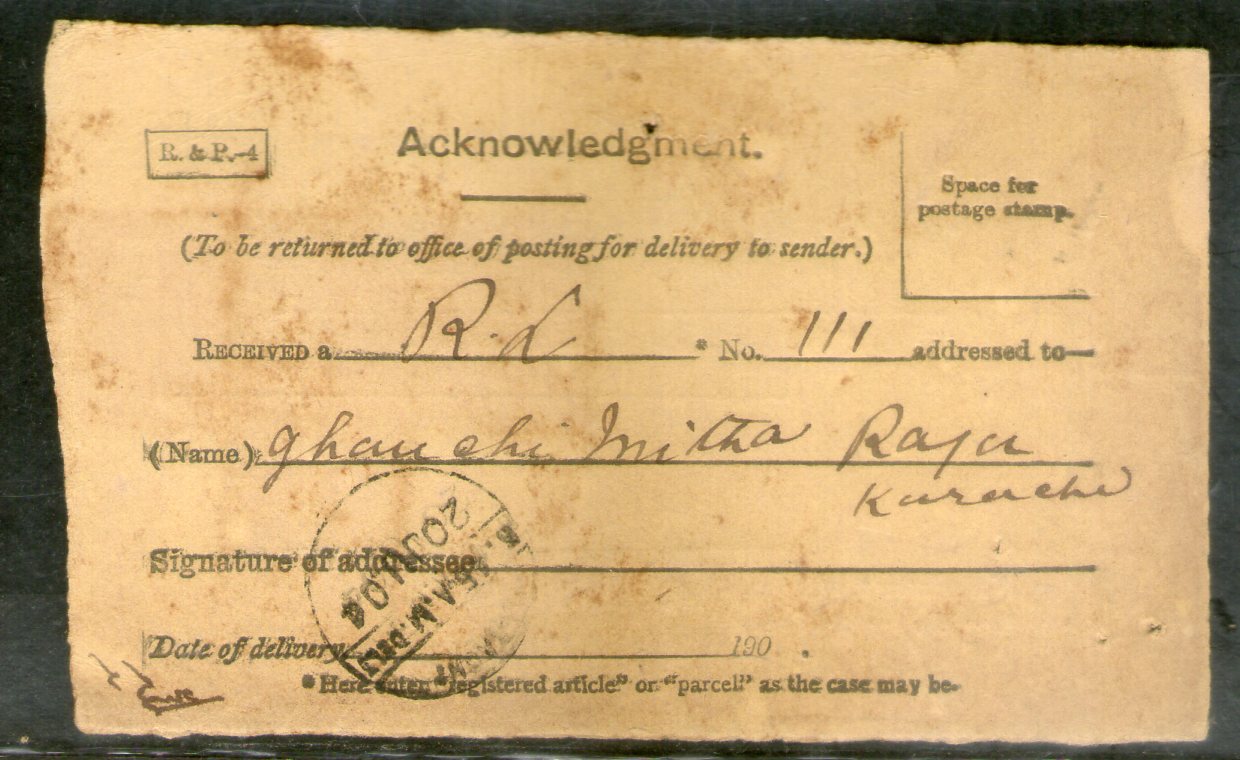 R. & P.-4
Acknowledgment.
Space for
postage stamp.
(To be returned to office of posting for delivery to sender.)
RECEIVED a R. L * No. 111 addressed to—
(Name) Ghanchi Mitha Raja
Karachi
Signature of addressee
20 JU 04
A.M. DELY
Date of delivery 190 .
* Here enter "registered article" or "parcel" as the case may be.